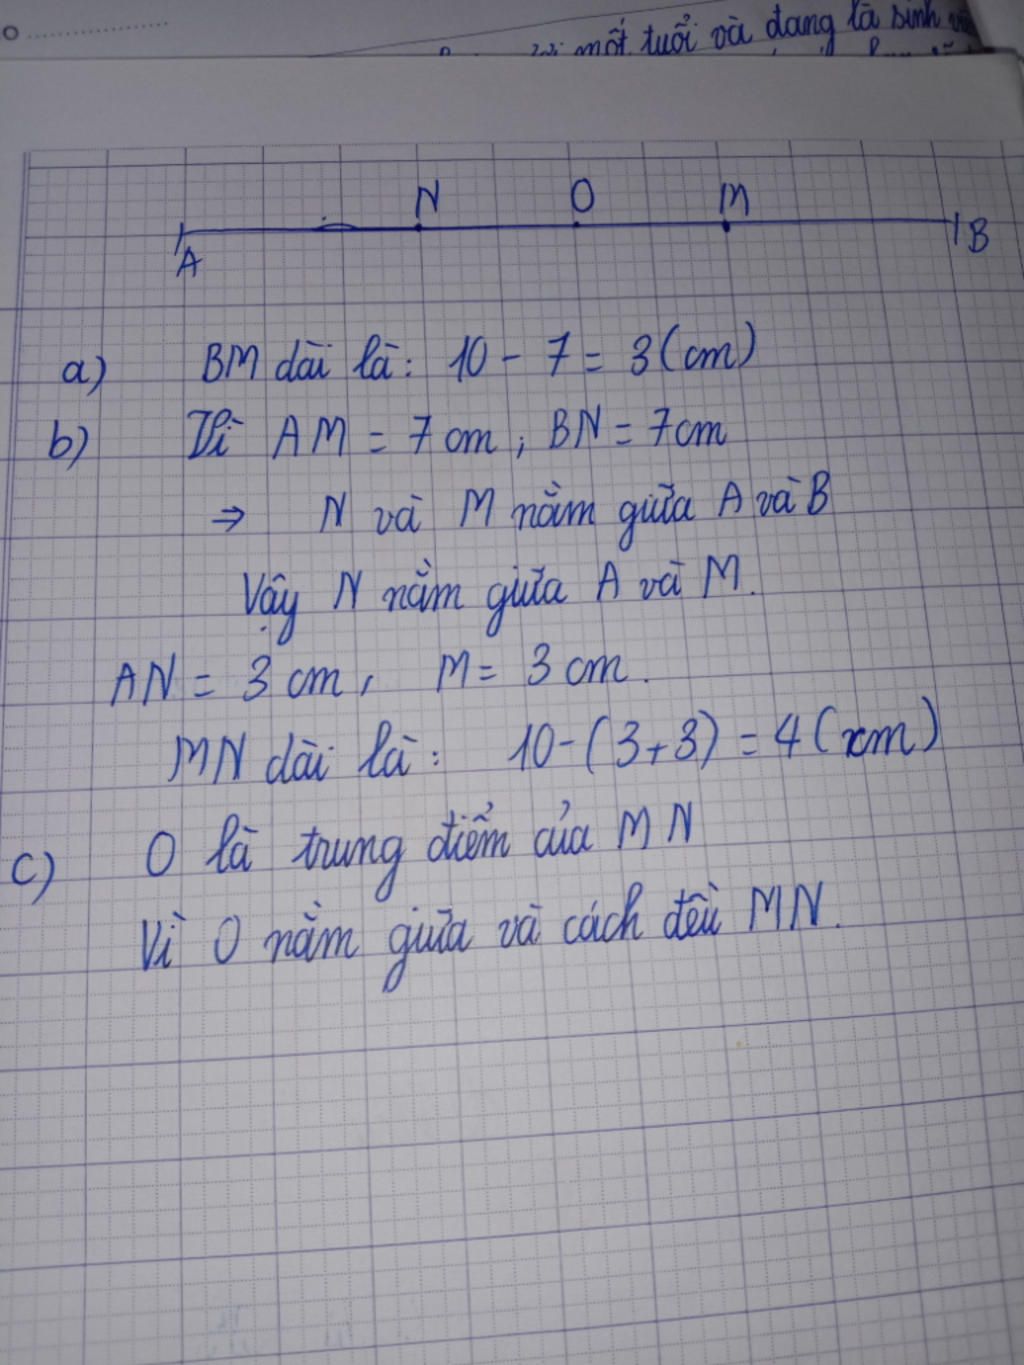 một tuổi và đang là sinh
N O M
A B
a) BM dài là: 10 - 7 = 3 (cm)
b) Vì AM = 7 cm, BN = 7 cm
⇒ N và M nằm giữa A và B
Vậy N nằm giữa A và M.
AN = 3 cm, M = 3 cm.
MN dài là: 10 - (3 + 3) = 4 (xm)
c) O là trung điểm của MN
Vì O nằm giữa và cách đều MN.